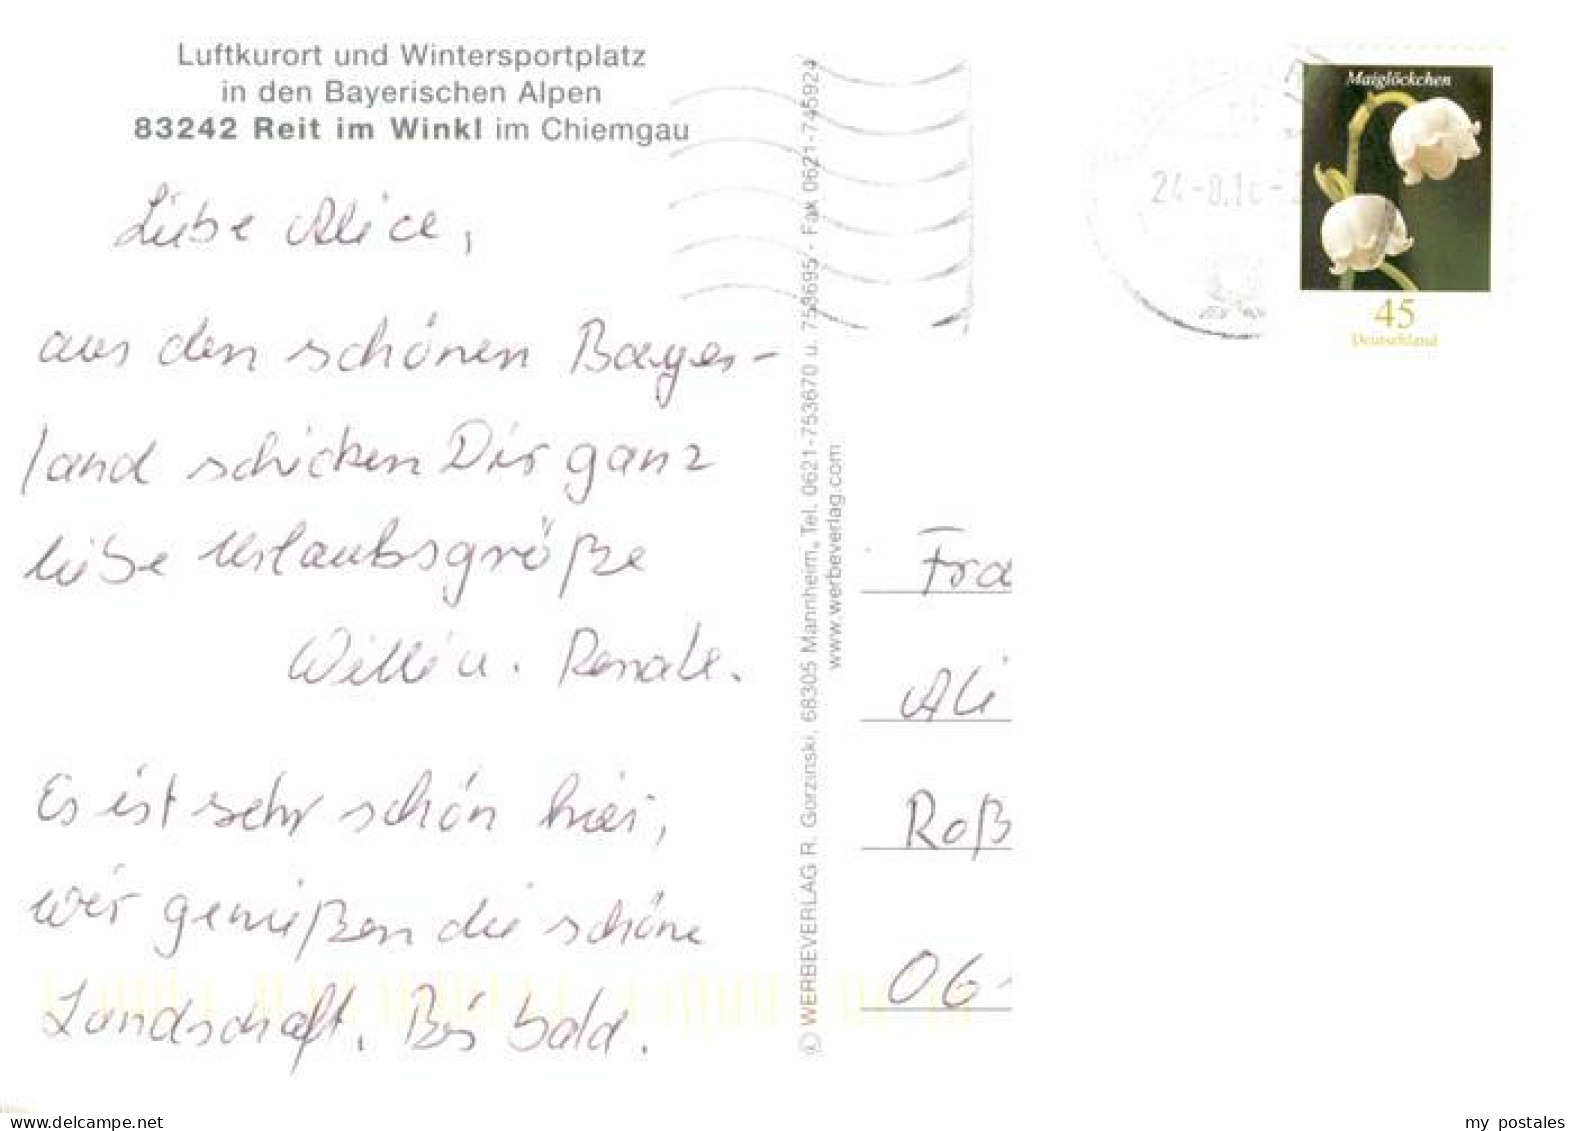 Luftkurort und Wintersportplatz
in den Bayerischen Alpen
83242 Reit im Winkl im Chiemgau
Liebe Alice,
aus den schönen Bayer-
land schicken Dir ganz
liebe Urlaubsgrüße
Willi u. Renate.
Es ist sehr schön hier,
wir genießen die schöne
Landschaft. Bis bald.
© WERBEVERLAG R. Gorzinski, 68305 Mannheim, Tel. 0621-753670 u. 753695 - Fax 0621-745924
www.werbeverlag.com
Maiglöckchen
45
Deutschland
Fra
Ali
Roß
06-
www.delcampe.net
my postales